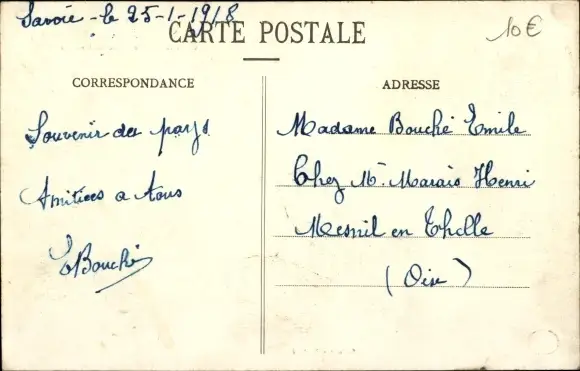 Savoie - le 25-1-1918
10€
CARTE POSTALE
CORRESPONDANCE
Souvenir du pays
Amitiées a tous
EBouché
ADRESSE
Madame Bouché Emile
Chez Mr. Marais Henri
Mesnil en Thelle
(Oise)